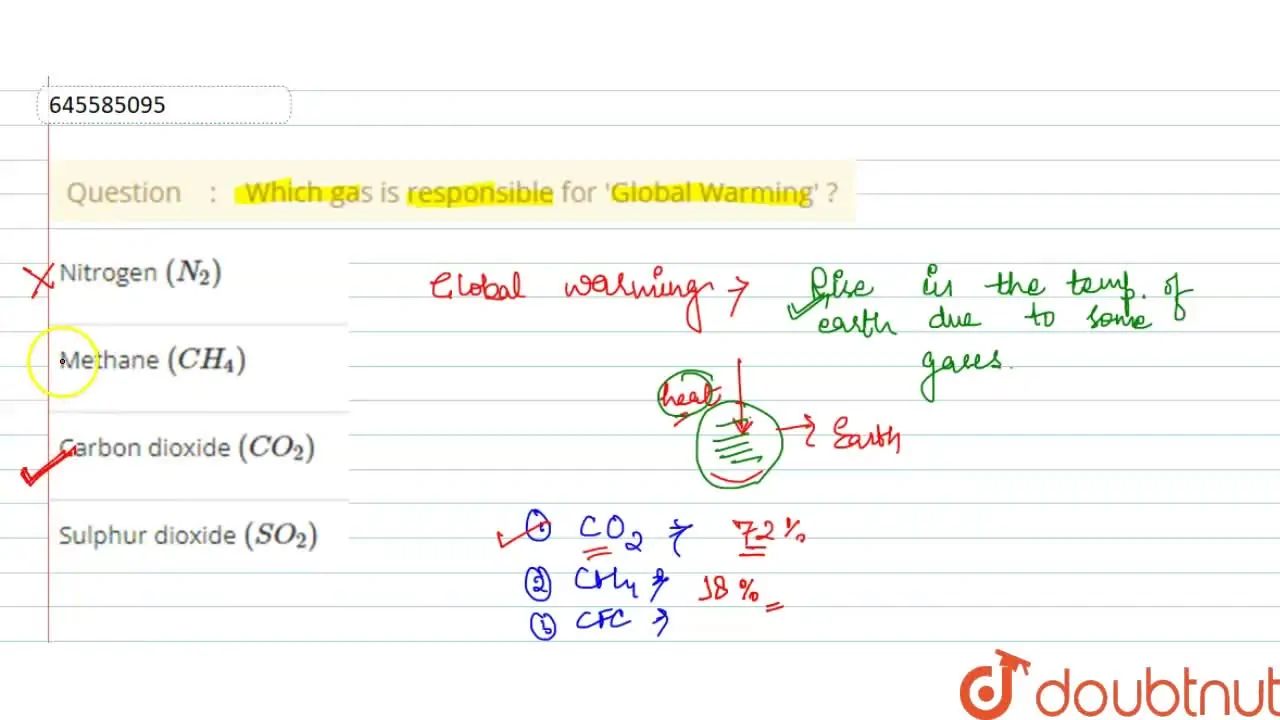 645585095
Question : Which gas is responsible for 'Global Warming' ?
Nitrogen (N₂)
Methane (CH₄)
Carbon dioxide (CO₂)
Sulphur dioxide (SO₂)
Global warming → Rise in the temp. of
earth due to some
gases.
heat
→ Earth
① CO₂ → 72%
② CH₄ → 18%
③ CFC →
doubtnut